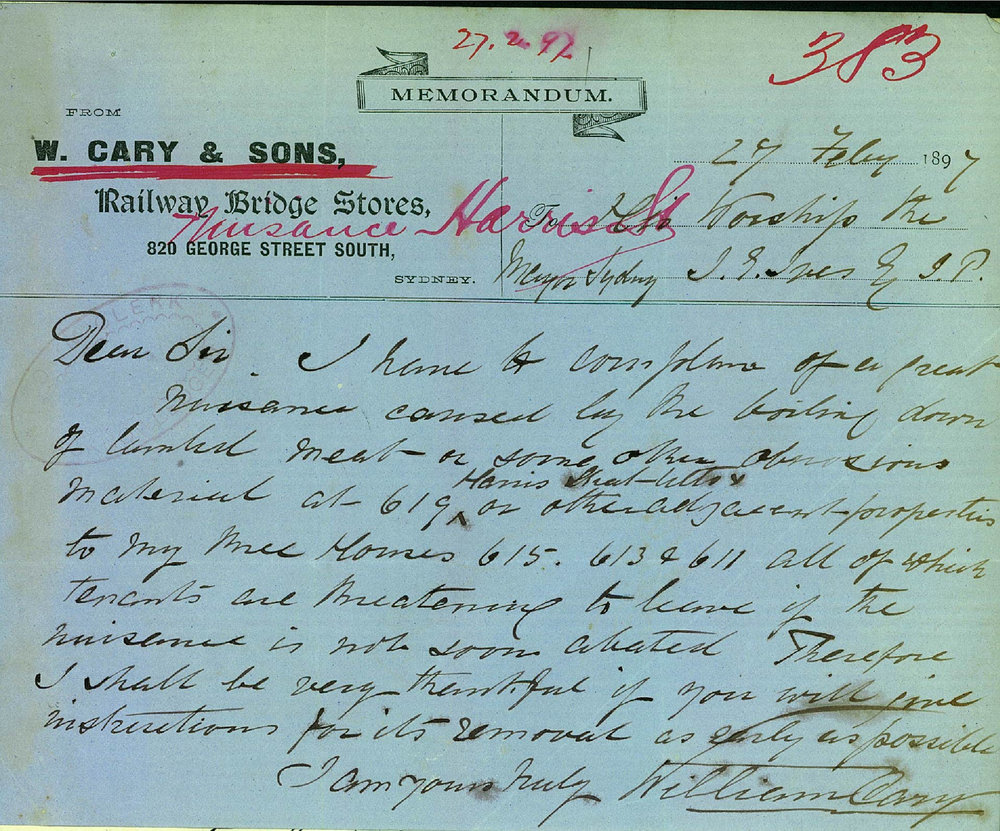 27.2.97
383
MEMORANDUM.
FROM
W. CARY & SONS,
Railway Bridge Stores,
820 GEORGE STREET SOUTH,
SYDNEY.
Nuisance Harris St
27 Feby 1897
To His Worship the
Mayor Sydney I. E. Ives Eq J.P.
Dear Sir I have to complain of a great
nuisance caused by the boiling down
of tainted meat or some other obnoxious
Harris Street
material at 619 or other adjacent properties
to my three Houses 615. 613 & 611 all of which
tenants are threatening to leave if the
nuisance is not soon abated Therefore
I shall be very thankful if you will give
instructions for its removal as early as possible
I am yours truly William Cary